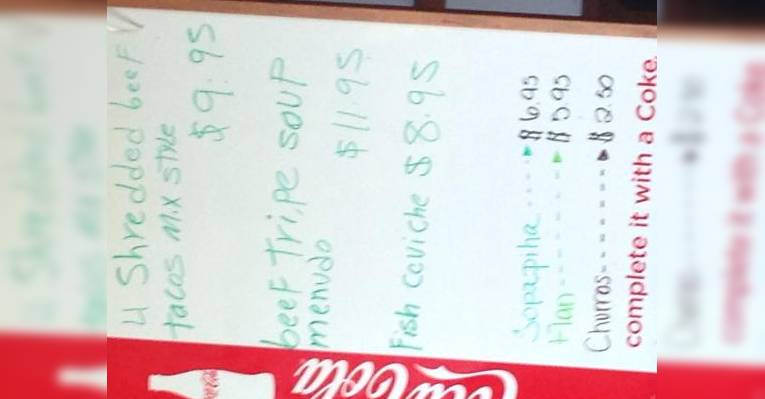 4 Shredded beef
tacos Mix style
$ 9.95
beef Tripe soup
menudo
$ 11.95
Fish Ceviche $ 8.95
Sopapiha ---- $ 6.95
Flan ------- $ 5.95
Churros -------- $ 2.50
complete it with a Coke.
Coca-Cola